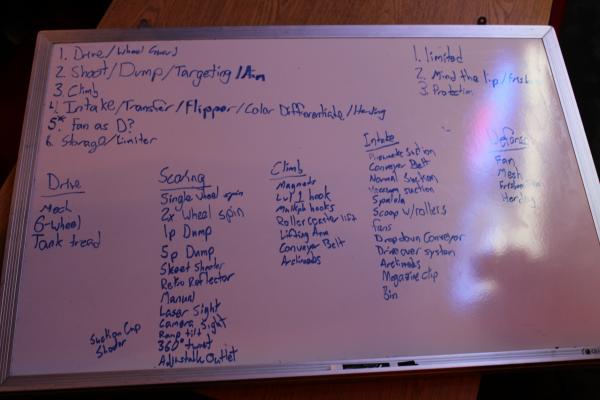 1. Drive/Wheel Guard
2 Shoot/Dump/Targeting/Aim
3 Climb
4. Intake/Transfer/Flipper/Color Differentiate/Herding
5.* Fan as D?
6. Storage/Limiter
1. limited
2. Mind the lip/
3. Protection
Drive
Mech
6-Wheel
Tank tread
Scoring
Single wheel spin
2x Wheel spin
1p Dump
5p Dump
Skeet Shooter
Retro Reflector
Manual
Laser Sight
Camera Sight
Ramp tilt sight
360° turret
Adjustable Outlet
Suction Cup
Shooter
Climb
Magnets
Lvl 1 hook
Multiple hooks
Roller coaster lift
Lifting Arm
Conveyor Belt
Archimedes
Intake
Pneumatic Suction
Conveyor Belt
Normal Suction
Vacuum suction
Spatula
Scoop w/rollers
Fans
Drop down Conveyor
Drive over system
Archimedes
Magazine clip
Bin
Defense
Fan
Mesh
Herding